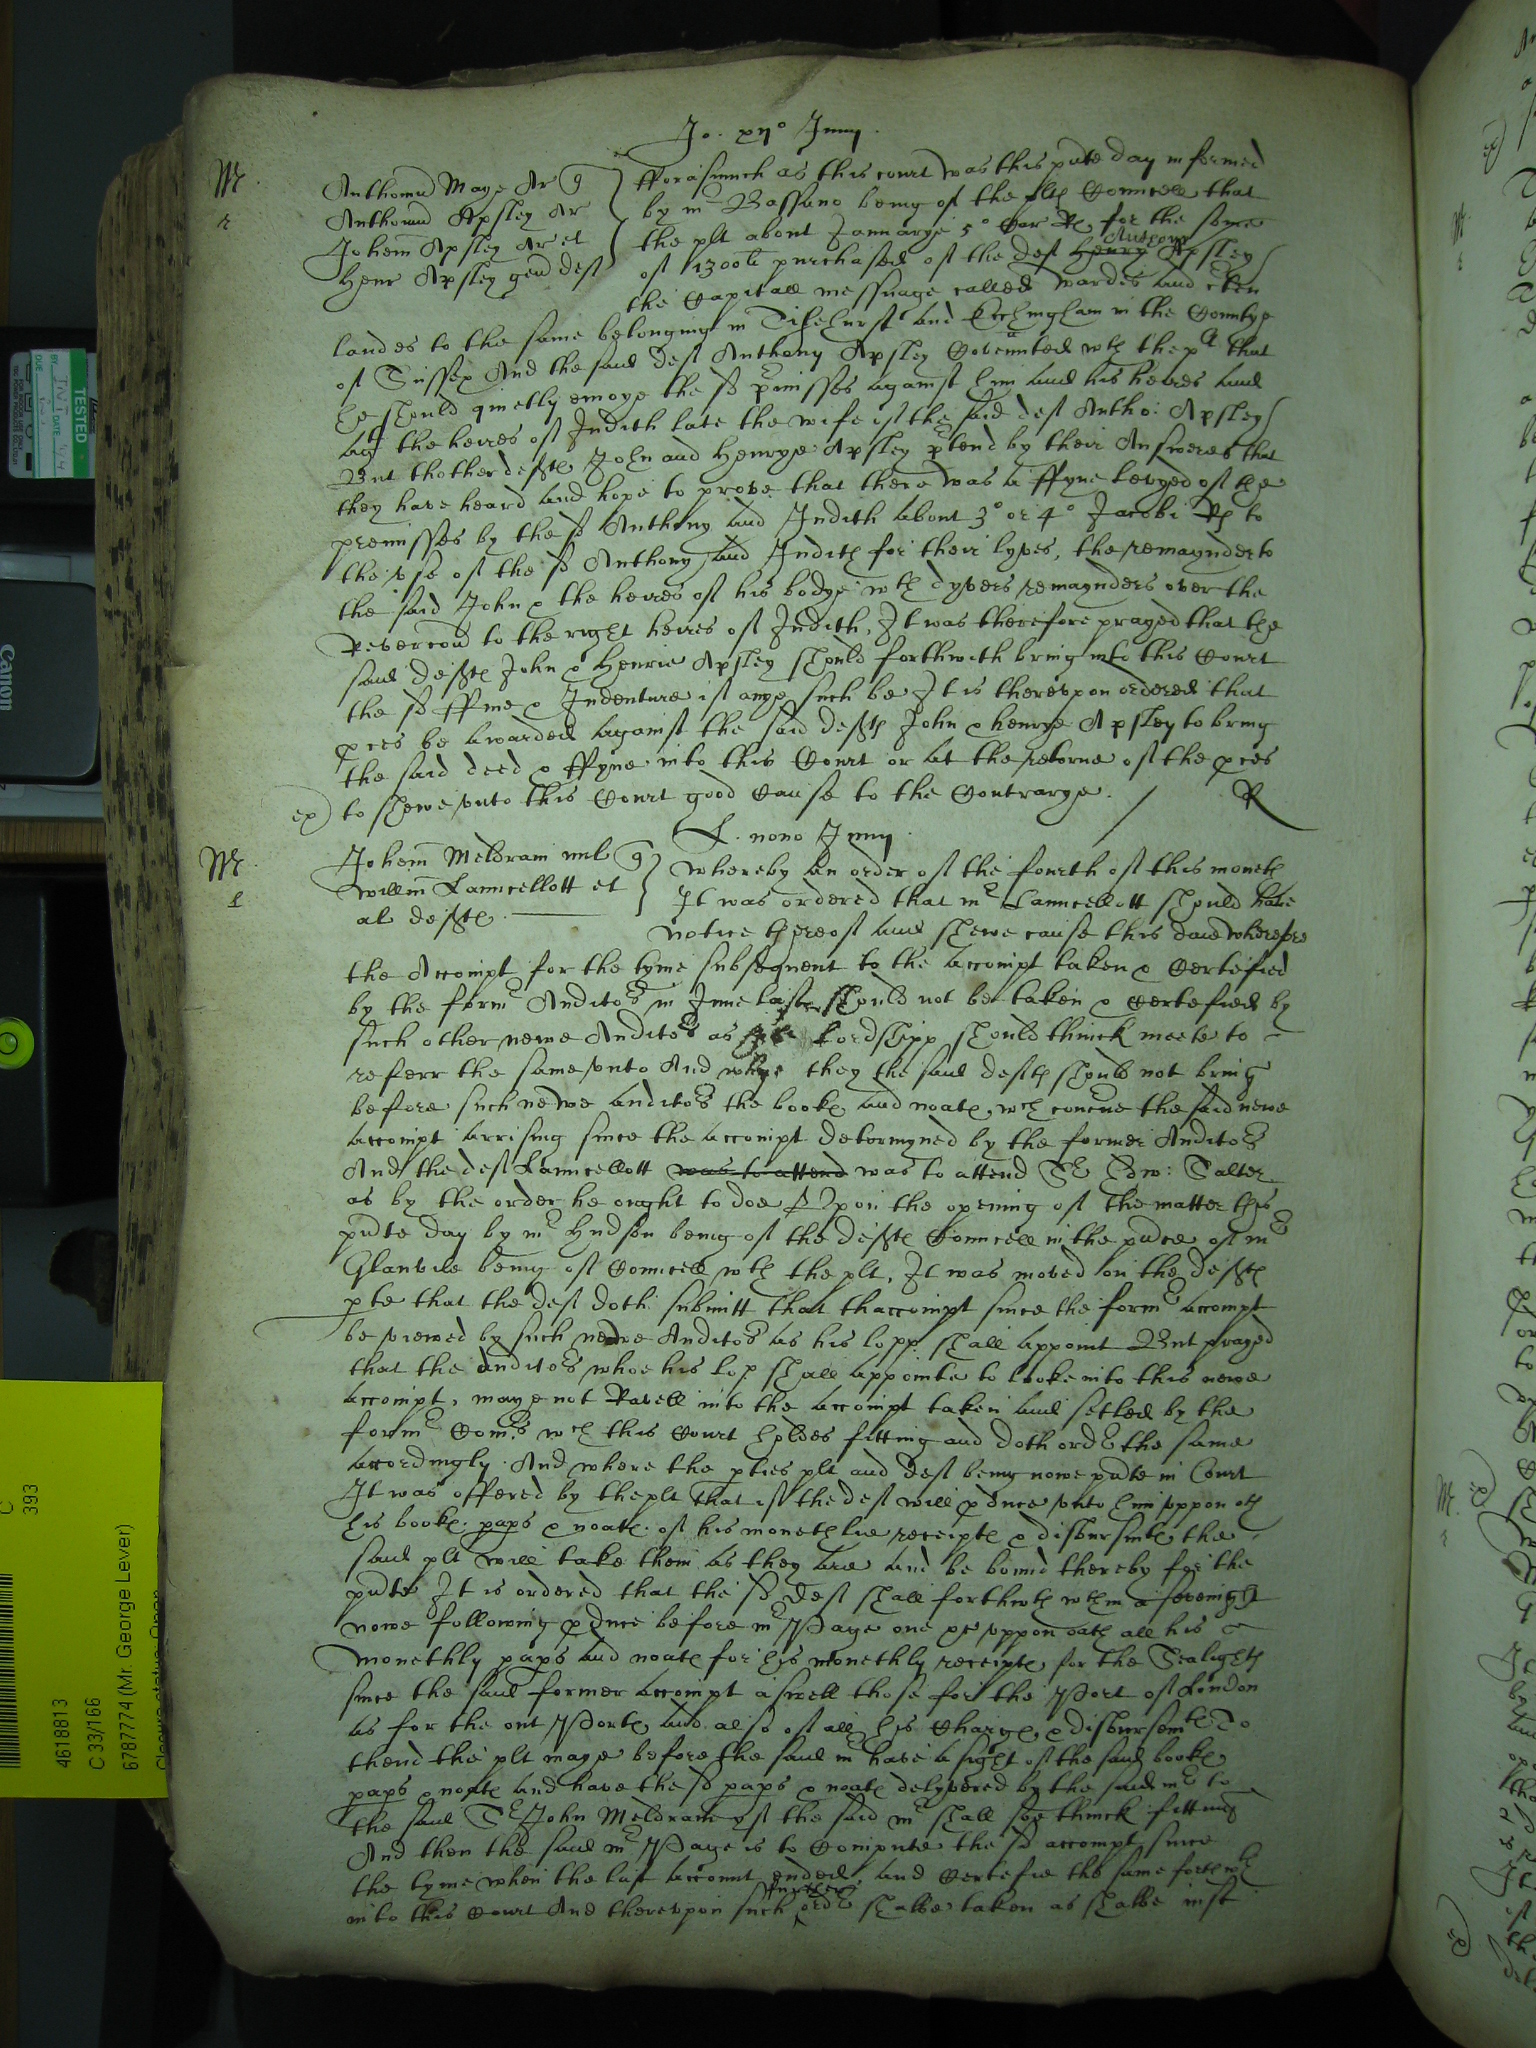 Jo. xii° Junij.
Mr
r
Anthoniu Maye Ar q
Anthoniu Apsley Ar
Johem Apsley Ar et
Henr Apsley gen deft
fforasmuch as this court was this pnte day informed
by mr Bassano being of the plts Councell that
the plt about Januarye 5° Car Rs for the some
of 1300li purchased of the deft Henry Anthony Apsley
the Capitall messuage called Wardes and
landes to the same belonging in Ticehurst and Etchingham in the Countye
of Sussex And the said deft Anthony Apsley Covennted wth the plt that
he should quietly enioye the sd pmisses against him and his heires and
agt the heires of Judith late the wife of the said deft Antho: Apsley
But thother defts John and Henrye Apsley ptend by their Answeres that
they have heard and hope to prove that there was a ffyne levyed of the
premisses by the sd Anthony and Judith about 3° or 4° Jacobi Rs to
the vse of the sd Anthony and Judith for their lyves, the remaynder to
the said John & the heires of his bodye wth dyvers remaynders over the
Revercon to the right heires of Judith, It was therefore prayed that the
said defts John & Henrie Apsley should forthwith bring into this Court
the sd ffine & Indenture if anye such be It is therevpon ordered that
pces be awarded against the said defts John & henrye Apsley to bring
the said deed & ffyne into this Court or at the retorne of the pces
ex) to shewe vnto this Court good Cause to the Contrarye. / R
L. nono Junij.
Mr
Johem Meldram mil q
Willm Lanncellott et
al defts
Whereby an order of the fourth of this moneth
It was ordered that mr Lanncellott should have
notice thereof and shewe cause this daie wherefore
the Accompt for the tyme subsequent to the accompt taken & Certefied
by the formr Auditors in June last should not be taken & Certefied by
such other newe Auditors as his Lordshipp should thinck meete to
referr the same vnto And whye they the said defts should not bring
before such newe auditors the bookes and noates, wch concne the said newe
accompt arrising since the accompt determyned by the former Auditors
And the deft Lanncellott was to attend was to attend Sr Edw: Salter
as by the order he ought to doe Vpon the opening of the matter this
pnte day by mr Hudson being of the defts Councell in the pnce of mr
Glanvile being of Councell wth the plt, It was moved on the defts
pte that the deft doth submitt that thaccompt since the formr accompt
be viewed by such newe Auditors as his lopp shall appoint But prayed
that the auditors whoe his lop shall appointe to looke into this newe
accompt, maye not Ravell into the accompt taken and setled by the
formr Comrs wch this Court holdes fitting and doth ordr the same
accordingly. And where the pties plt and deft being nowe pnte in Court
It was offered by the plt that if the deft will pduce vnto him vppon oth
his bookes paps & noates of his monethlie receiptes & disbursmts the
said plt will take them as they are and be bound thereby for the
pnte It is ordered that the sd deft shall forthwth wthin a sevenight
nowe following pduce before mr Page one &c vppon oath all his
monethly paps and noates for his monethly receiptes for the Sealights
since the said former accompt aswell those for the Port of London
as for the out Portes and also of all his Charges & disbursemts To
thend the plt maye before the said mr have a sight of the said bookes
paps & noates and have the sd paps & noates delyvered by the said mr to
the said Sr John Meldram yf the said mr shall soe thinck fitting
And then the said mr Page is to Compute the sd accompt since
the tyme when the last account ended, and Certefie the same forthwth
into this Court And therevpon such further ordr shalbe taken as shalbe iust
TESTED
INT
DATE
DUE
BY
Canon
C
393
4618813
C 33/166
6787774 (Mr. George Lever)